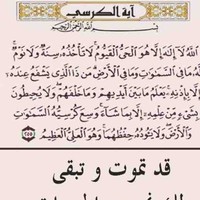 آية الكرسي
بسم الله الرحمن الرحيم
ٱللَّهُ لَآ إِلَٰهَ إِلَّا هُوَ ٱلْحَىُّ ٱلْقَيُّومُ لَا تَأْخُذُهُۥ سِنَةٌ وَلَا نَوْمٌ
لَّهُۥ مَا فِى ٱلسَّمَٰوَٰتِ وَمَا فِى ٱلْأَرْضِ مَن ذَا ٱلَّذِى يَشْفَعُ عِندَهُۥٓ
إِلَّا بِإِذْنِهِۦ يَعْلَمُ مَا بَيْنَ أَيْدِيهِمْ وَمَا خَلْفَهُمْ وَلَا يُحِيطُونَ
بِشَىْءٍ مِّنْ عِلْمِهِۦٓ إِلَّا بِمَا شَآءَ وَسِعَ كُرْسِيُّهُ ٱلسَّمَٰوَٰتِ
وَٱلْأَرْضَ وَلَا يَـُٔودُهُۥ حِفْظُهُمَا وَهُوَ ٱلْعَلِىُّ ٱلْعَظِيمُ ٢٥٥
قد تموت و تبقى